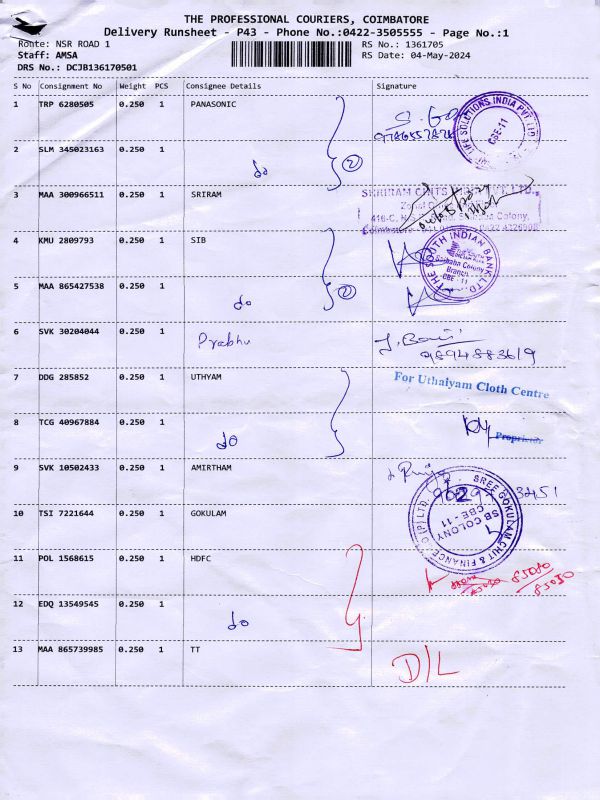 THE PROFESSIONAL COURIERS, COIMBATORE
Delivery Runsheet - P43 - Phone No.:0422-3505555 - Page No.:1
Route: NSR ROAD 1 RS No.: 1361705
Staff: AMSA RS Date: 04-May-2024
DRS No.: DCJB136170501
S No Consignment No Weight PCS Consignee Details Signature
1 TRP 6280505 0.250 1 PANASONIC
LIFE SOLUTIONS INDIA PVT LTD
CBE-11
2 SLM 345023163 0.250 1 do 2
3 MAA 300966511 0.250 1 SRIRAM
SHRIRAM CHITS LTD.,
Colony,
4 KMU 2809793 0.250 1 SIB
THE SOUTH INDIAN BANK LTD
Saibaba Colony
Branch
CBE - 11
5 MAA 865427538 0.250 1 do 2
6 SVK 30204044 0.250 1 Prabhu
9894883619
7 DDG 285852 0.250 1 UTHYAM
For Uthaiyam Cloth Centre
8 TCG 40967884 0.250 1 do
Proprietor
9 SVK 10502433 0.250 1 AMIRTHAM
10 TSI 7221644 0.250 1 GOKULAM
SREE GOKULAM CHIT & FINANCE CO (P) LTD.
SB COLONY
CBE - 11
11 POL 1568615 0.250 1 HDFC
85030
12 EDQ 13549545 0.250 1 do
13 MAA 865739985 1 TT D/L